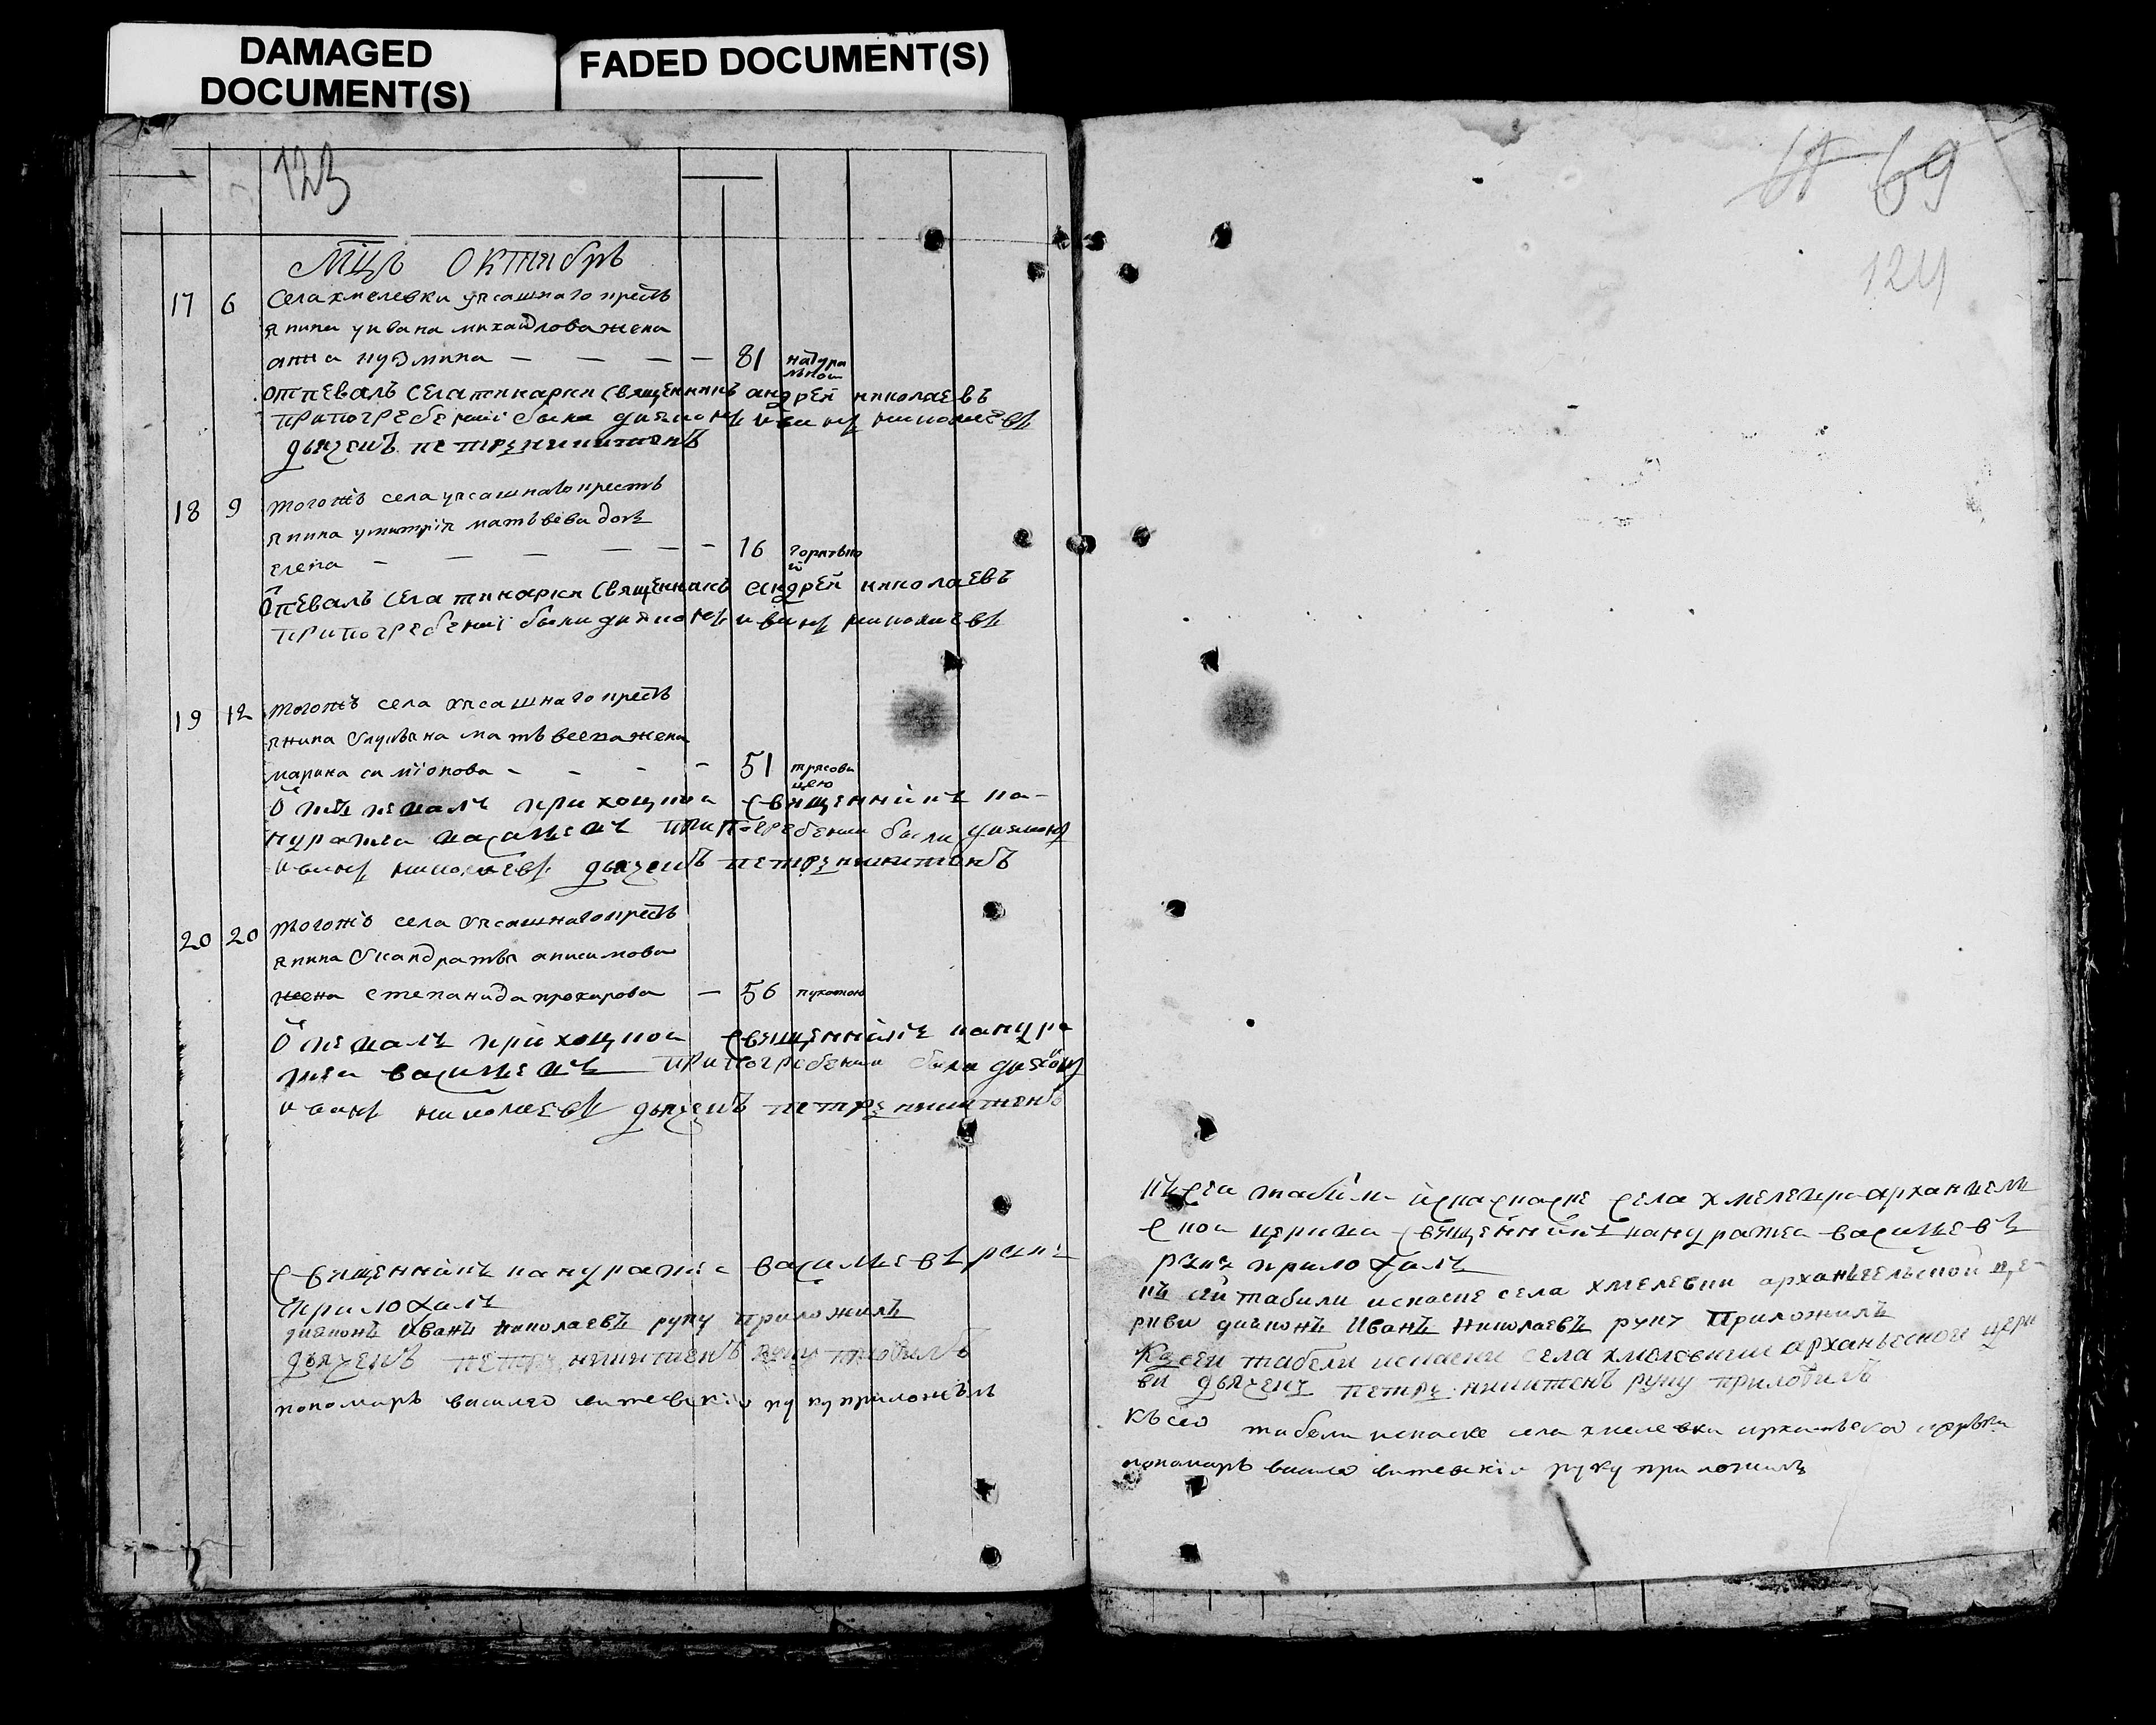 DAMAGED
DOCUMENT(S)
FADED DOCUMENT(S)
123
Мцъ октябрь
17 6 Села хмелевки ясашнаго кресть
янина ивана михайлова жена
анна кузмина — — — — 81 натура
льною
отпевалъ села тинарки священникъ андрей николаевъ
при погребениі были дияконъ иванъ николаевъ
дьячекъ петръ никитинъ
18 9 тогожъ села ясашнаго кресть
янина дмитрія матвеева дочь
елена — — — — — — 16 горячко
й
ѿпевалъ села тинарки священникъ андрей николаевъ
при погребениі были дияконъ иванъ николаевъ
19 12 тогожъ села ясашнаго кресть
янина матвеева жена
марина симіонова — — — — 51 трясови
цею
ѿпевалъ приходской священникъ ка-
ндратей василевъ при погребении были диякон
иванъ николаевъ дьячекъ петръ никитинъ
20 20 тогожъ села ясашнаго кресть
янина кандратья анисимова
жена степанида прохарова — 56
ѿпевалъ приходской священникъ кандра
тей василевъ при погребении были диякон
иванъ николаевъ дьячекъ петръ никитинъ
священникъ кандратей василевъ руку
приложилъ
диаконъ Иванъ Николаевъ руку приложилъ
дьячекъ петръ никитинъ руку приложилъ
пономарь василей руку приложилъ
69
124
къ сей табели села архангел
ской церкви священникъ кандратей василевъ
руку приложилъ
къ сей табели села хмелевки архангельской це-
ркви диаконъ Иванъ Николаевъ руку Приложилъ
Къ сей табели села хмелевки церк
ви дьячекъ петръ никитинъ руку приложилъ
къ сей табели села хмелевки церкви
пономарь руку приложилъ